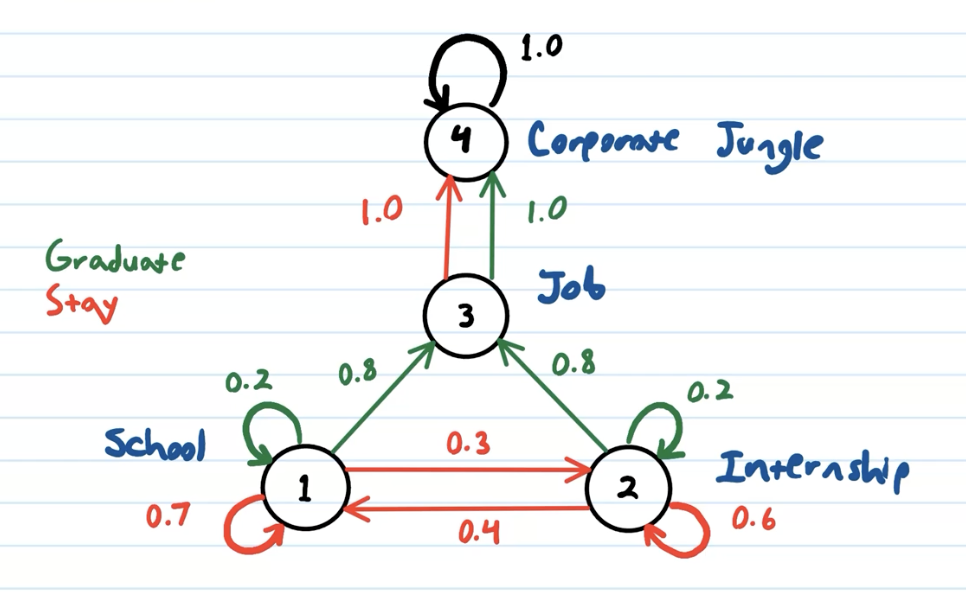 1.0
4 Corporate Jungle
1.0 1.0
Graduate
Stay
Job
3
0.8 0.8
0.2 0.2
School
0.3
Internship
1 2
0.7 0.4 0.6